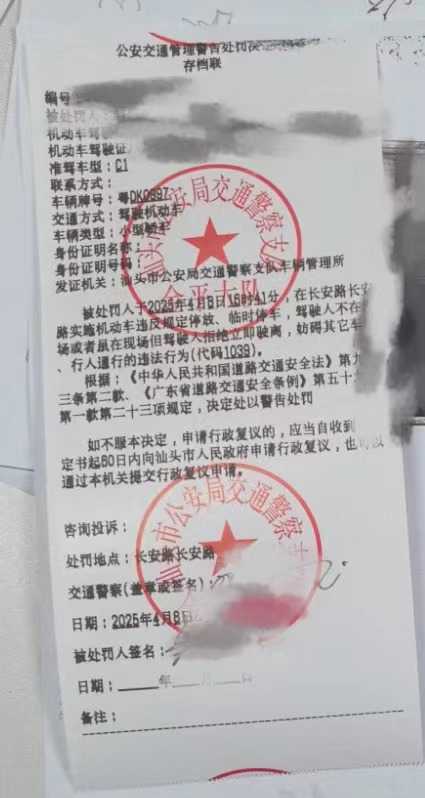 公安交通管理警告处罚决
存档联
编号:
被处罚人:
机动车驾驶
机动车驾驶证
准驾车型:C1
联系方式:
车辆牌号:粤DK0997
交通方式:驾驶机动车
车辆类型:小型轿车
身份证明名称:
身份证明号码:
发证机关:汕头市公安局交通警察支队车辆管理所
被处罚人于2025年4月8日16时41分,在长安路长安
路实施机动车违反规定停放、临时停车,驾驶人不在
场或者虽在现场但驾驶人拒绝立即驶离,妨碍其它车
、行人通行的违法行为(代码1039)。
根据:《中华人民共和国道路交通安全法》第九
三条第二款、《广东省道路交通安全条例》第五十
第一款第二十三项规定,决定处以警告处罚
如不服本决定,申请行政复议的,应当自收到
定书起60日内向汕头市人民政府申请行政复议,也可以
通过本机关提交行政复议申请。
咨询投诉:
处罚地点:长安路长安路
交通警察(盖章或签名):
日期:2025年4月8日
被处罚人签名:
日期:____年__月__日
备注:
汕头市公安局交通警察支队
金平大队
汕头市公安局交通警察